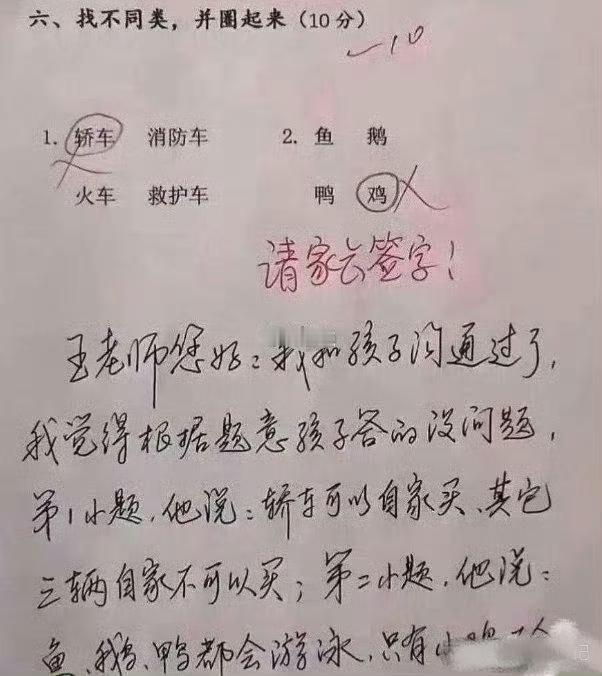 六、找不同类，并圈起来（10分）
-10
1. 轿车 消防车 2. 鱼 鹅
火车 救护车 鸭 鸡
请家长签字！
王老师您好：我和孩子沟通过了，
我觉得根据题意孩子答的没问题，
第1小题，他说：轿车可以自家买、其它
三辆自家不可以买；第二小题，他说：
鱼、鹅、鸭都会游泳，只有小鸡